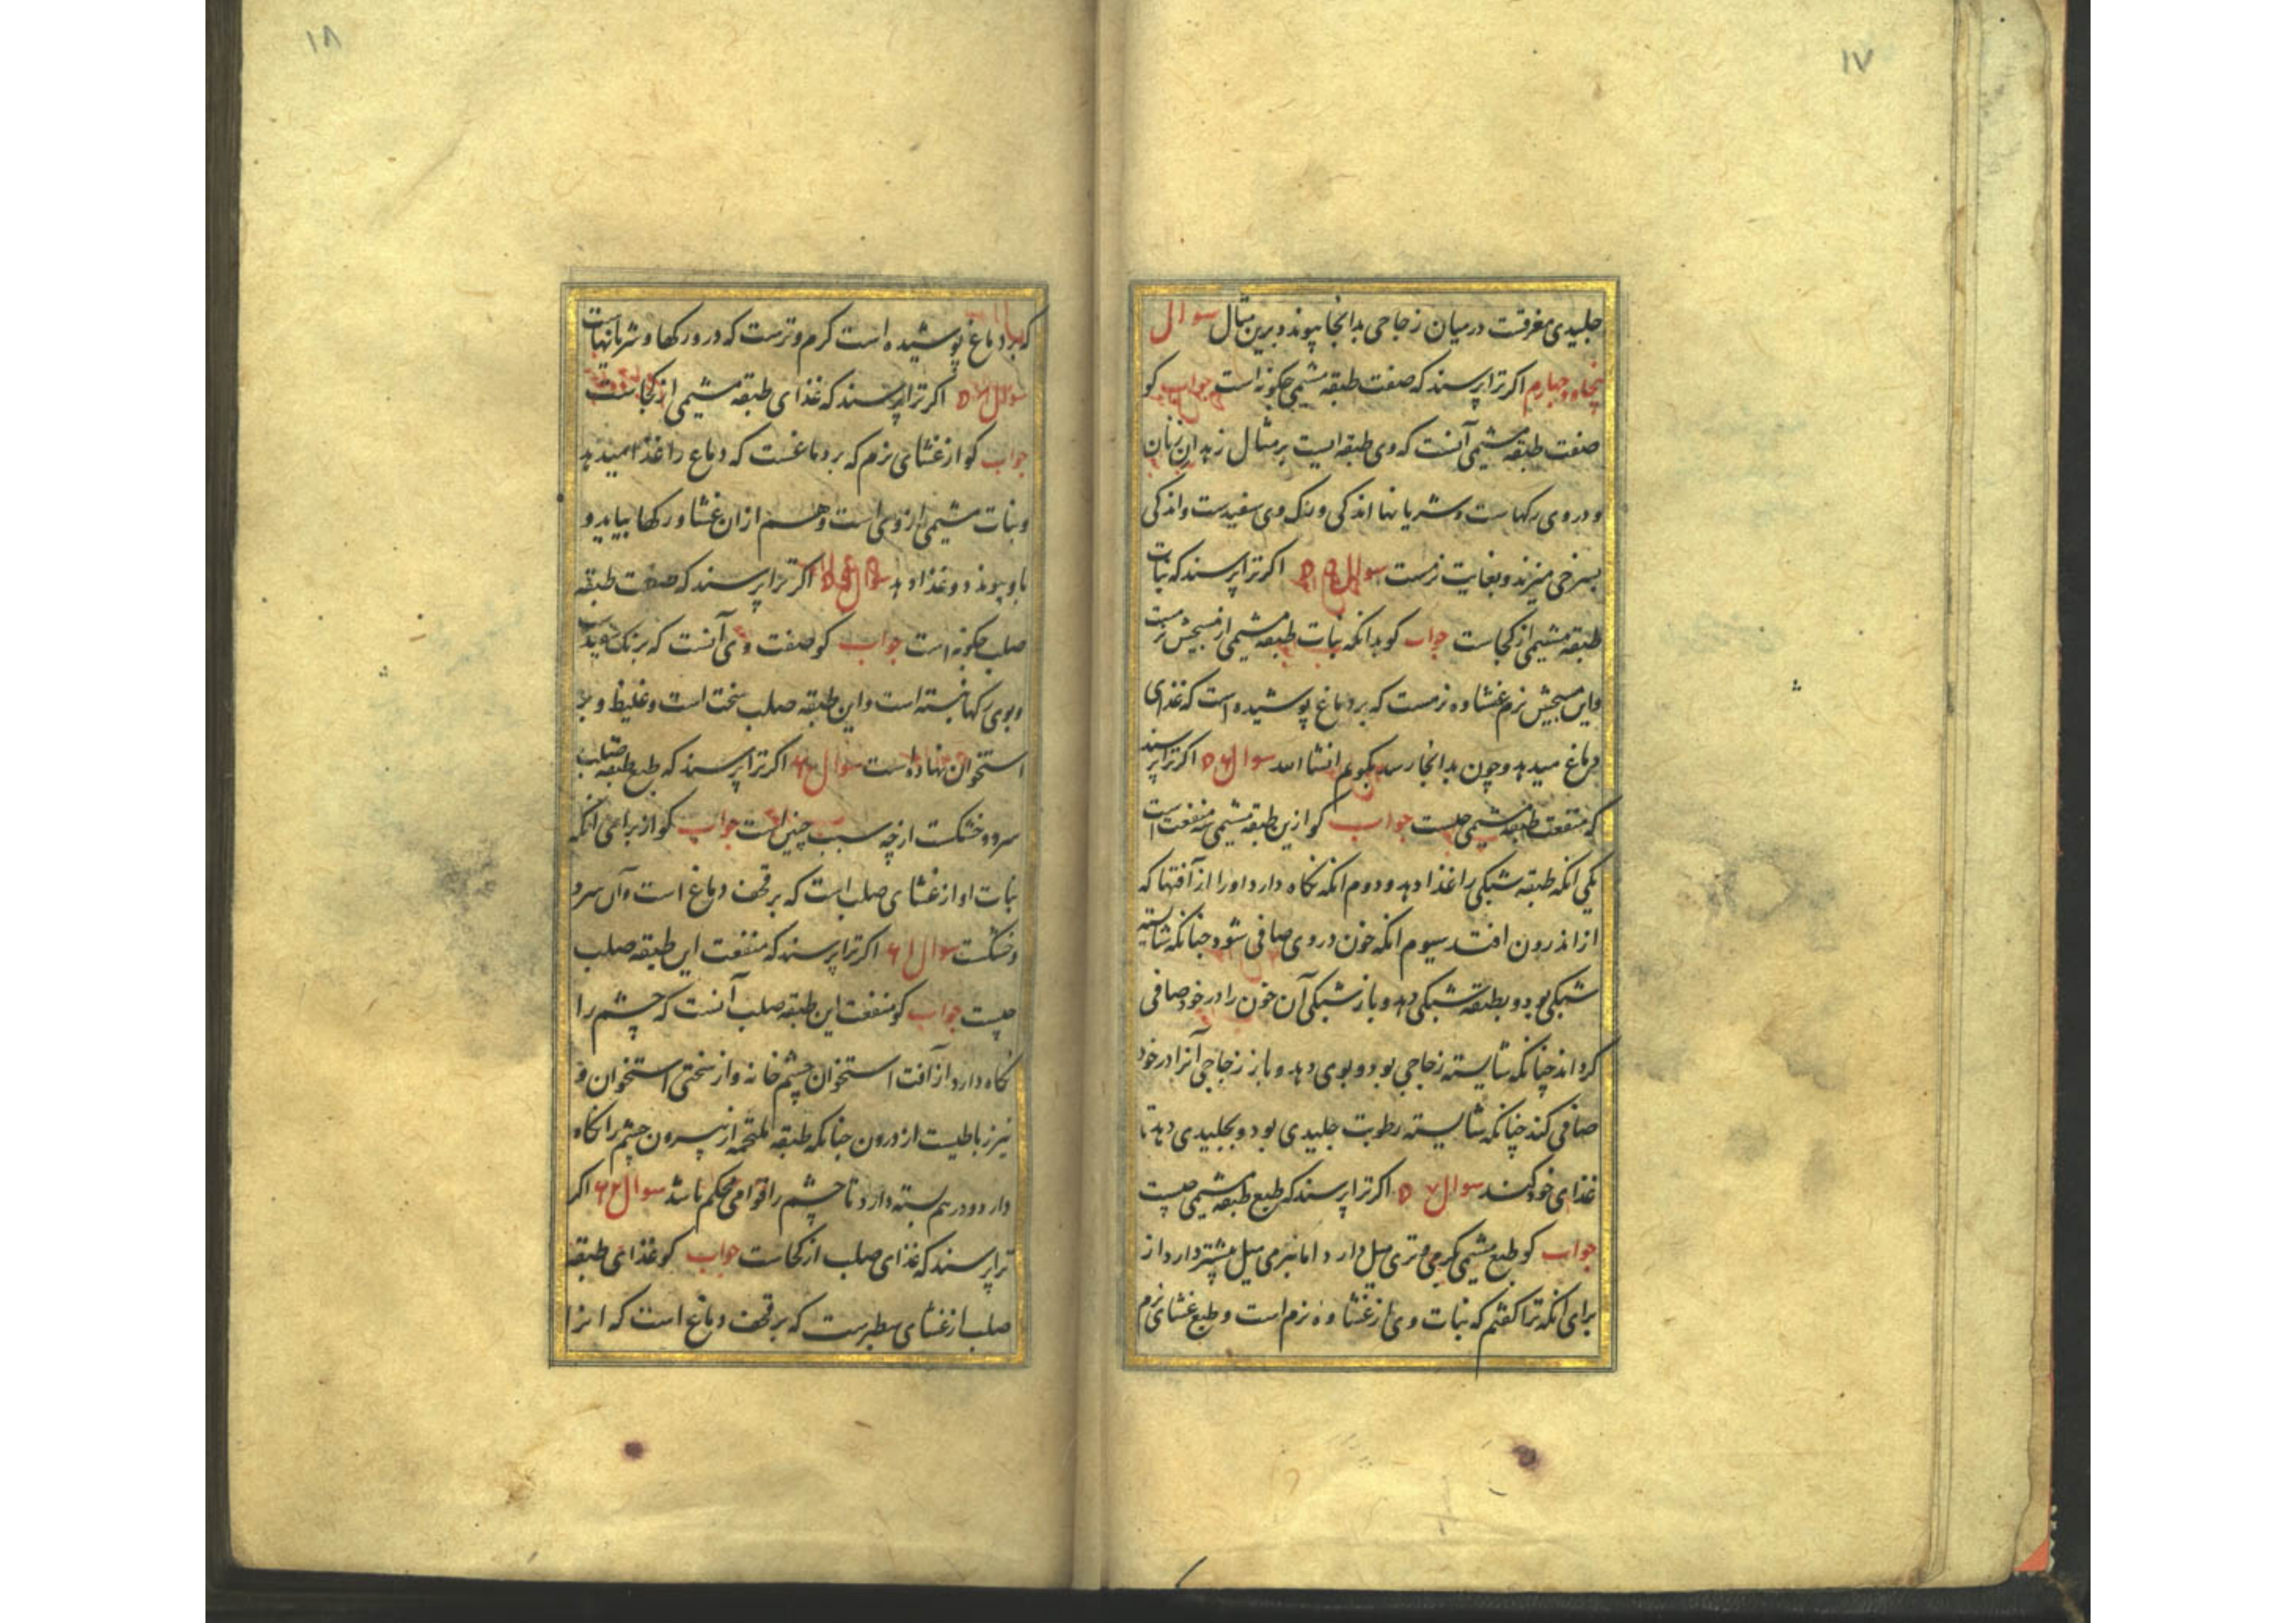 ١٧
جلیدی مغرقست در میان زجاجی بدانجا پیوند و برین مثال سوال
پنجاه و چهارم اکر ترا پرسند که صفت طبقه مشیمی چکونه است جواب کو
صفت طبقه مشیمی آنست که وی طبقه ایست بر مثال زهدان زنان
و در وی رکهاست و شریانها اندکی و رنک وی سفیدست و اندکی
بسرخی میزند و بغایت نرمست سوال ۵۵ اکر ترا پرسند که نبات
طبقه مشیمی از کجاست جواب کو بدانکه نبات طبقه مشیمی از
واین نرم غشا وه نرمست که بر دماغ پوشیده است که غذای
دماغ میدهد و چون بدانجا رسد بکویم انشا الله سوال ۵۶ اکر ترا پرسند
که منفعت طبقه مشیمی چیست جواب کو ازین طبقه مشیمی سه منفعت است
یکی انکه طبقه شبکی را غذا دهد و دوم انکه نکاه دارد او را از آفتها که
از اندرون افتد سیوم انکه خون در وی صافی شود چنانکه شایسته
شبکی بود و بطبقه شبکی دهد و باز شبکی آن خون را در خود صافی
کرداند چنانکه شایسته زجاجی بود و بوی دهد و باز زجاجی آنرا در خود
صافی کند چنانکه شایسته رطوبت جلیدی بود و بجلیدی دهد تا
غذای خود کند سوال ۵۷ اکر ترا پرسند که طبع طبقه مشیمی چیست
جواب کو طبع مشیمی بکرمی و تری میل دارد اما بنرمی میل بیشتر دارد از
برای انکه ترا کفتم که نبات وی از غشا وه نرم است و طبع غشای نرم
١٨
که بر دماغ پوشیده است کرم و ترست که در و رکها و شریانهاست
سوال ۵۸ اکر ترا پرسند که غذای طبقه مشیمی از کجاست
جواب کو از غشای نرم که بر دماغست که دماغ را غذا میدهد
و نبات مشیمی از وی است و هم از ان غشا و رکها بیاید و
باو پیوندد و غذا دهد سوال ۵۹ اکر ترا پرسند که صفت طبقه
صلب چکونه است جواب کو صفت وی آنست که برنک سپیدست
وبوی رکها بسته است و این طبقه صلب سخت است و غلیظ و بر
استخوان نهاده است سوال ۶۰ اکر ترا پرسند که طبع طبقه صلب
سرد و خشکست از چه سبب چنین است جواب کو از برای انکه
نبات او از غشای صلب است که بر قحف دماغ است و آن سرد
و خشکست سوال ۶۱ اکر ترا پرسند که منفعت این طبقه صلب
چیست جواب کو منفعت این طبقه صلب آنست که چشم را
نکاه دارد از آفت استخوان چشم خانه و از سختی استخوان و
نیز رباطیست از درون چنانکه طبقه ملتحمه از بیرون چشم را نکاه
دارد و در هم بسته دارد تا چشم را قوامی محکم باشد سوال ۶۲ اکر
ترا پرسند که غذای صلب از کجاست جواب کو غذای طبقه
صلب از غشای سطبرست که بر قحف دماغ است که انرا